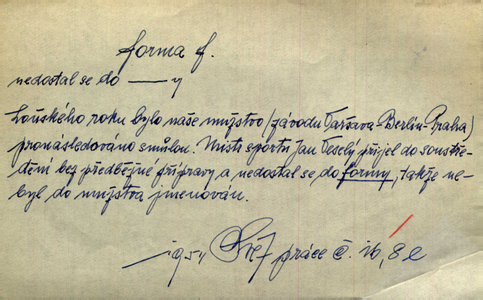 forma f.
nedostal se do —— y
Loňského roku bylo naše mužstvo (závodu Varšava-Berlín-Praha)
pronásledováno smůlou. Mistr sportu Jan Veselý přijel do soustře-
dění bez předběžné přípravy a nedostal se do formy, takže ne-
byl do mužstva jmenován.
práce č. 16, 8